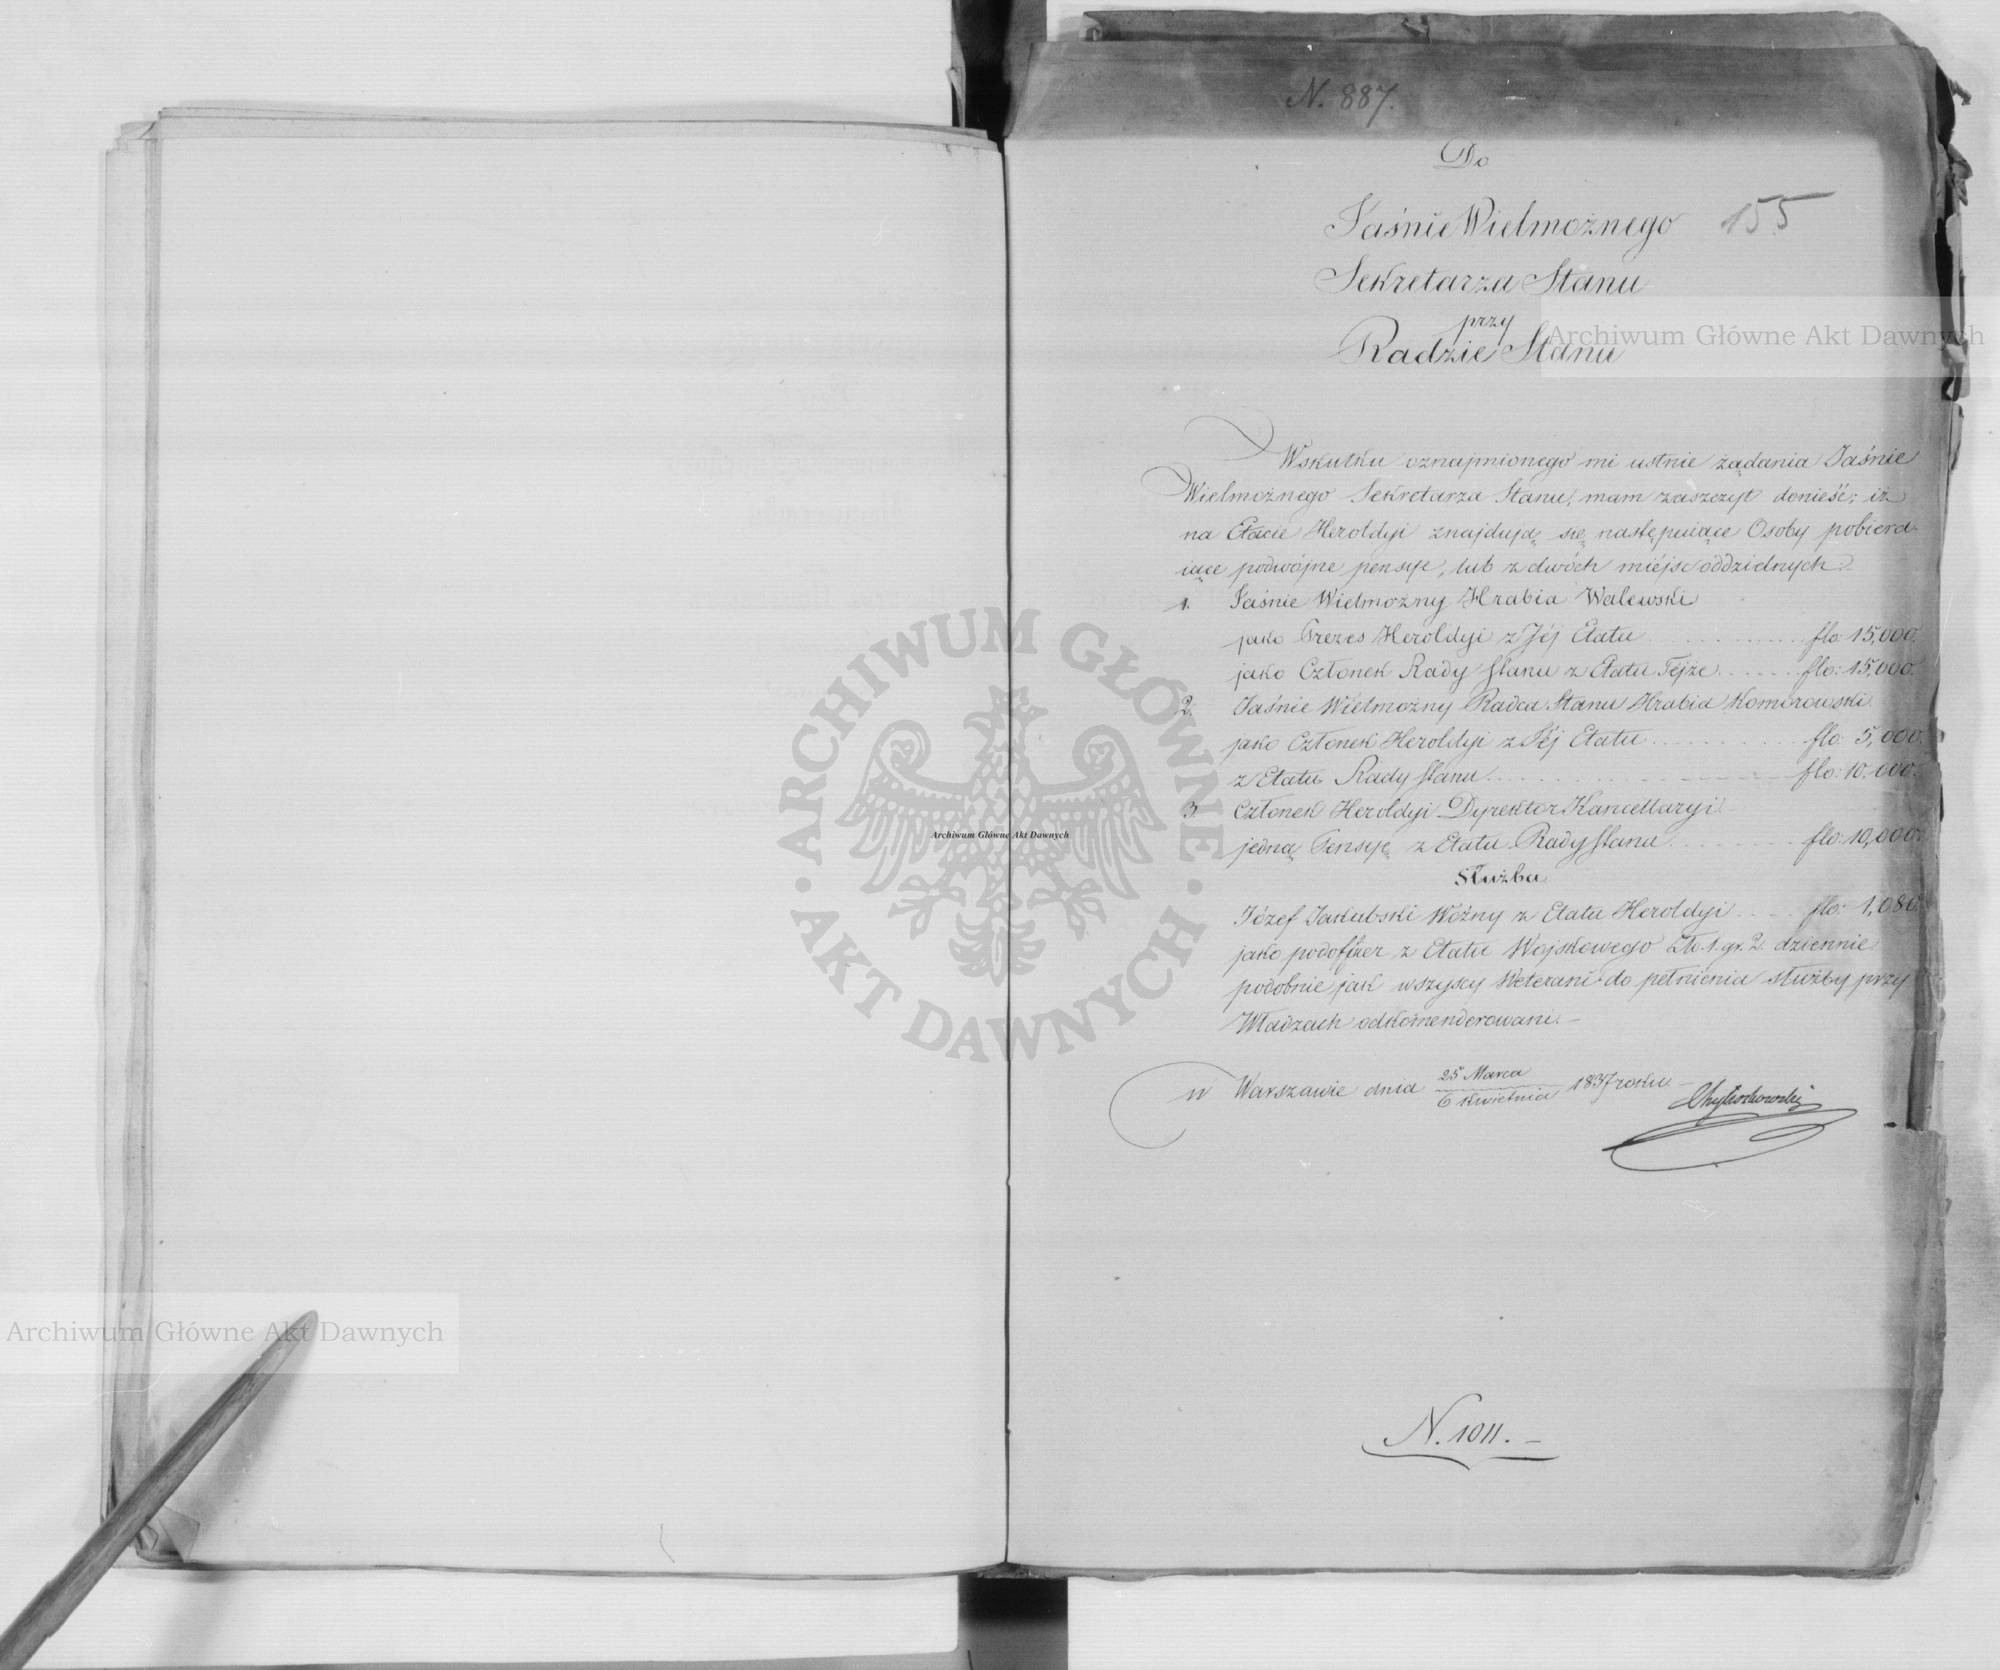 N. 887.
Do
155
Jaśnie Wielmożnego
Sekretarza Stanu
przy
Radzie Stanu
Archiwum Główne Akt Dawnych
Wskutku oznajmionego mi ustnie żądania Jaśnie
Wielmożnego Sekretarza Stanu, mam zaszczyt donieść; iż
na Etacie Heroldyi znajdują się następuiące Osoby pobiera-
iące podwójne pensye, lub z dwóch miéjsc oddzielnych.
1. Jaśnie Wielmożny Hrabia Walewski
jako Prezes Heroldyi z Jéj Etatu flo: 15,000.
jako Członek Rady Stanu z Etatu Téjże flo: 15,000.
2. Jaśnie Wielmożny Radca Stanu Hrabia Komorowski
jako Członek Heroldyi z Jéj Etatu flo: 5,000.
z Etatu Rady Stanu flo: 10.000.
3. Członek Heroldyi Dyrektor Kancellaryi
jedną Pensyę z Etatu Rady Stanu flo: 10,000.
Służba
Józef Jakubski Woźny z Etatu Heroldyi flo:
jako podofficer z Etatu Wojskowego Zło. 1. gr. 2. dziennie
podobnie jak wszyscy Weterani do pełnienia służby przy
Władzach odkomenderowani.
w Warszawie dnia 25 Marca / 6 Kwietnia 1837 roku.
N. 1011.
ARCHIWUM GŁÓWNE
AKT DAWNYCH
Archiwum Główne Akt Dawnych
Archiwum Główne Akt Dawnych